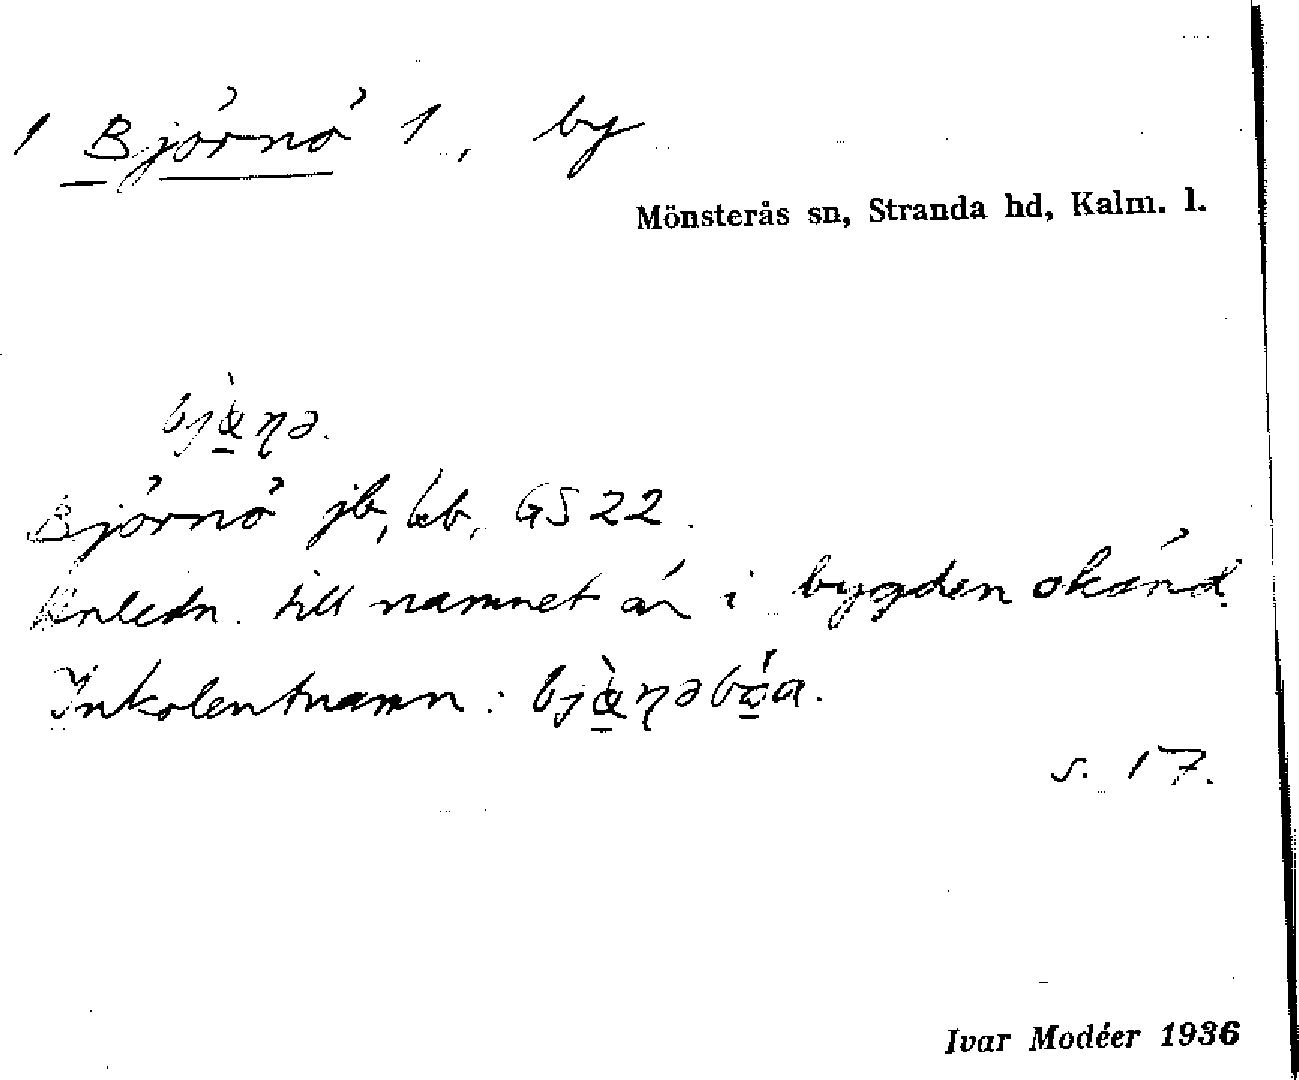 1 Björnö 1, by
Mönsterås sn, Stranda hd, Kalm. l.
bjæ̱̀ṇə.
Björnö jb, kb, GS 22.
Anledn. till namnet är i bygden okänd.
Inkolentnamn: bjæ̱̀ṇəbóa.
s. 17.
Ivar Modéer 1936